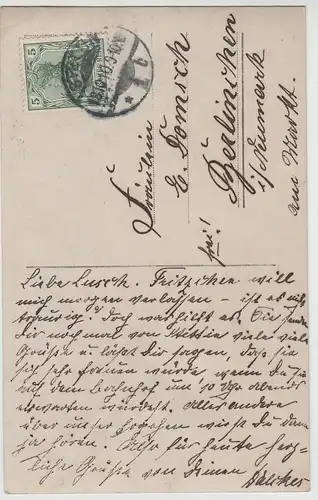 5 5
Fräulein
E. Domsch
Berlinchen
i/Neumark
am Markt.
frei!
Liebe Lusch. Fritzchen will
mich morgen verlassen – ist es nicht
traurig? Doch
Dir noch mal von viele viele
Grüsse u. läßt Dir sagen, dass sie
sich sehr freuen würde wenn Du sie
auf dem Bahnhof um 10 Uhr Abends
erwarten würdest. Alles andere
über unser Ergehen wirst Du dann
ja hören. Also für heute herz-
liche Grüsse von Deinen